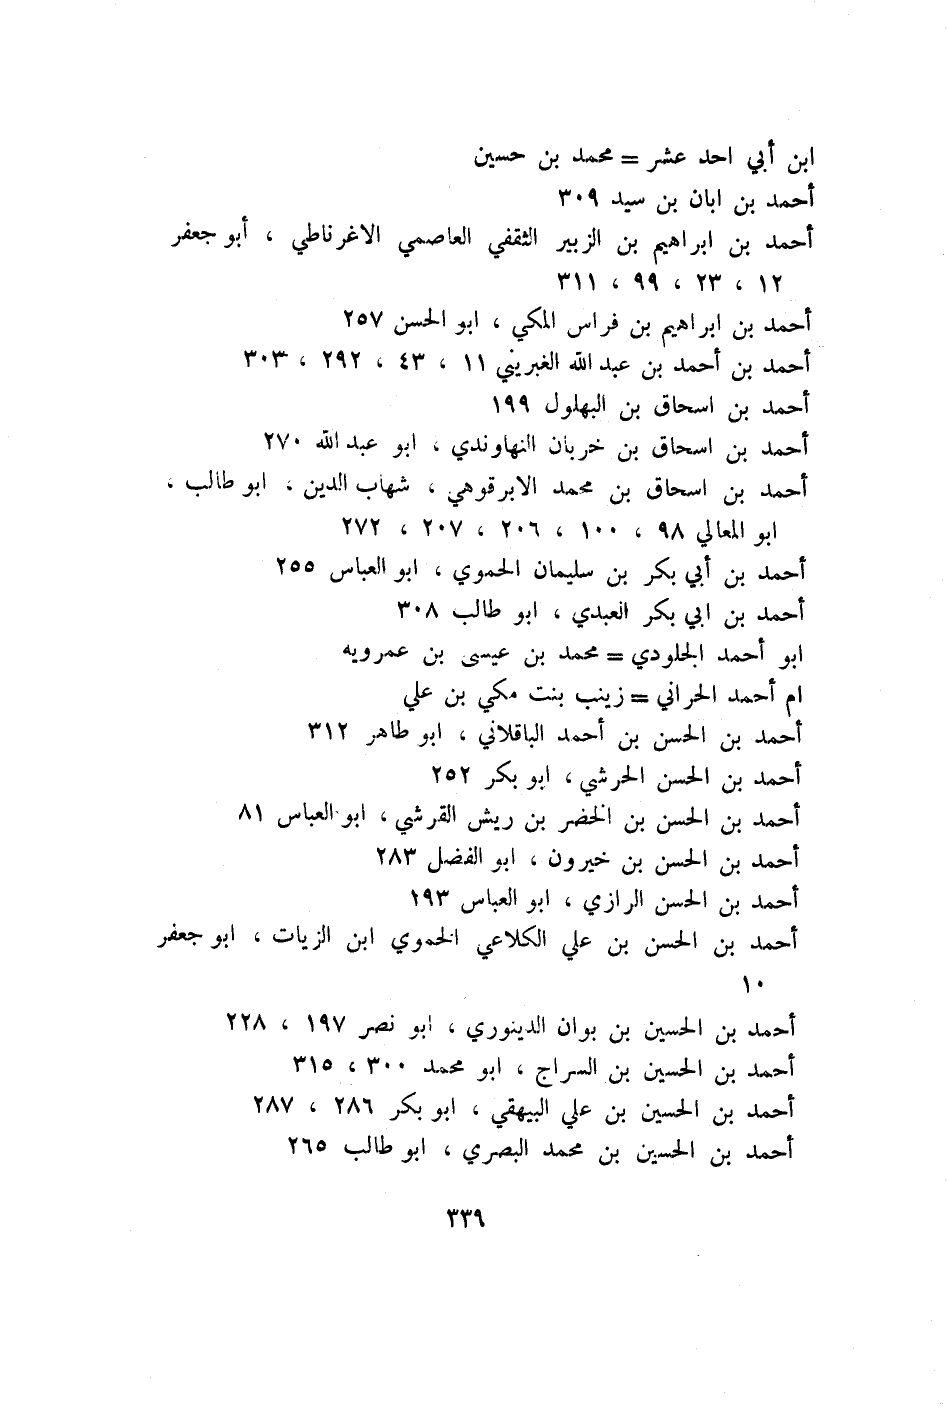 ابن أبي احد عشر = محمد بن حسين
أحمد بن ابان بن سيد ٣٠٩
أحمد بن ابراهيم بن الزبير الثقفي العاصمي الاغرناطي ، أبو جعفر
١٢ ، ٢٣ ، ٩٩ ، ٣١١
أحمد بن ابراهيم بن فراس المكي ، ابو الحسن ٢٥٧
أحمد بن أحمد بن عبد الله الغبريني ١١ ، ٤٣ ، ٢٩٢ ، ٣٠٣
أحمد بن اسحاق بن البهلول ١٩٩
أحمد بن اسحاق بن خربان النهاوندي ، ابو عبد الله ٢٧٠
أحمد بن اسحاق بن محمد الابرقوهي ، شهاب الدين ، ابو طالب ،
ابو المعالي ٩٨ ، ١٠٠ ، ٢٠٦ ، ٢٠٧ ، ٢٧٢
أحمد بن أبي بكر بن سليمان الحموي ، ابو العباس ٢٥٥
أحمد بن ابي بكر العبدي ، ابو طالب ٣٠٨
ابو أحمد الجلودي = محمد بن عيسى بن عمرويه
ام أحمد الحراني = زينب بنت مكي بن علي
أحمد بن الحسن بن أحمد الباقلاني ، ابو طاهر ٣١٢
أحمد بن الحسن الحرشي ، ابو بكر ٢٥٢
أحمد بن الحسن بن الخضر بن ريش القرشي ، ابو العباس ٨١
أحمد بن الحسن بن خيرون ، ابو الفضل ٢٨٣
أحمد بن الحسن الرازي ، ابو العباس ١٩٣
أحمد بن الحسن بن علي الكلاعي الحموي ابن الزيات ، ابو جعفر
١٠
أحمد بن الحسين بن بوان الدينوري ، ابو نصر ١٩٧ ، ٢٢٨
أحمد بن الحسين بن السراج ، ابو محمد ٣٠٠ ، ٣١٥
أحمد بن الحسين بن علي البيهقي ، ابو بكر ٢٨٦ ، ٢٨٧
أحمد بن الحسين بن محمد البصري ، ابو طالب ٢٦٥
٣٣٩